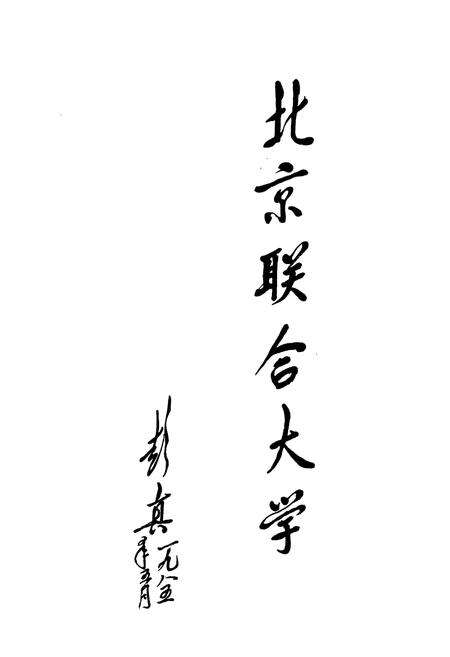 北京联合大学
彭真
一九八五
年五月